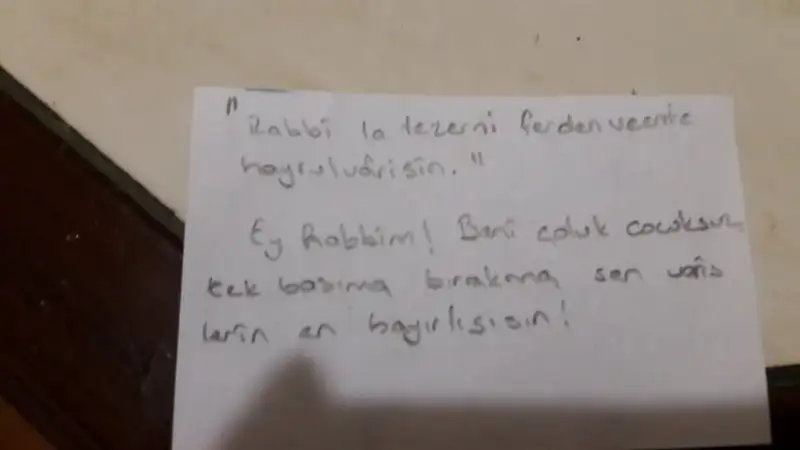 "Rabbi la tezerni ferden veente
hayrulvârisin."
Ey Rabbim! Beni çoluk cocuksuz,
tek basıma bırakma, sen varis
lerin en hayırlısısın!